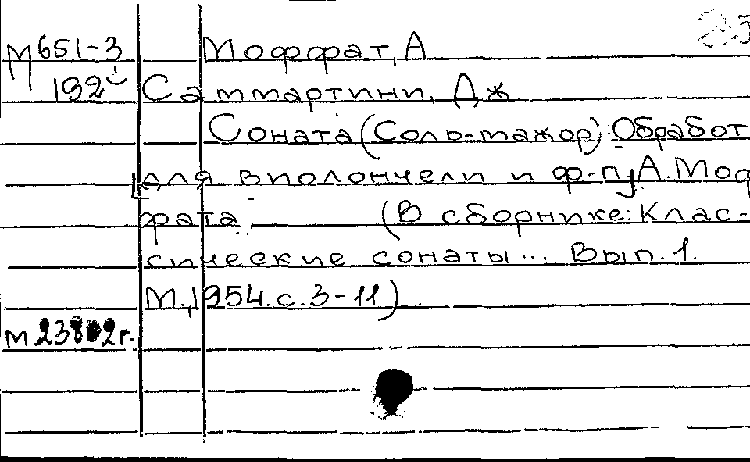 М651-3 Моффат, А
192 Саммартини, Дж
Соната (Соль-мажор) Обработ
для виолончели и ф-п А. Моф
фата (В сборнике: Клас-
сические сонаты... Вып. 1.
М., 1954. с. 3-11)